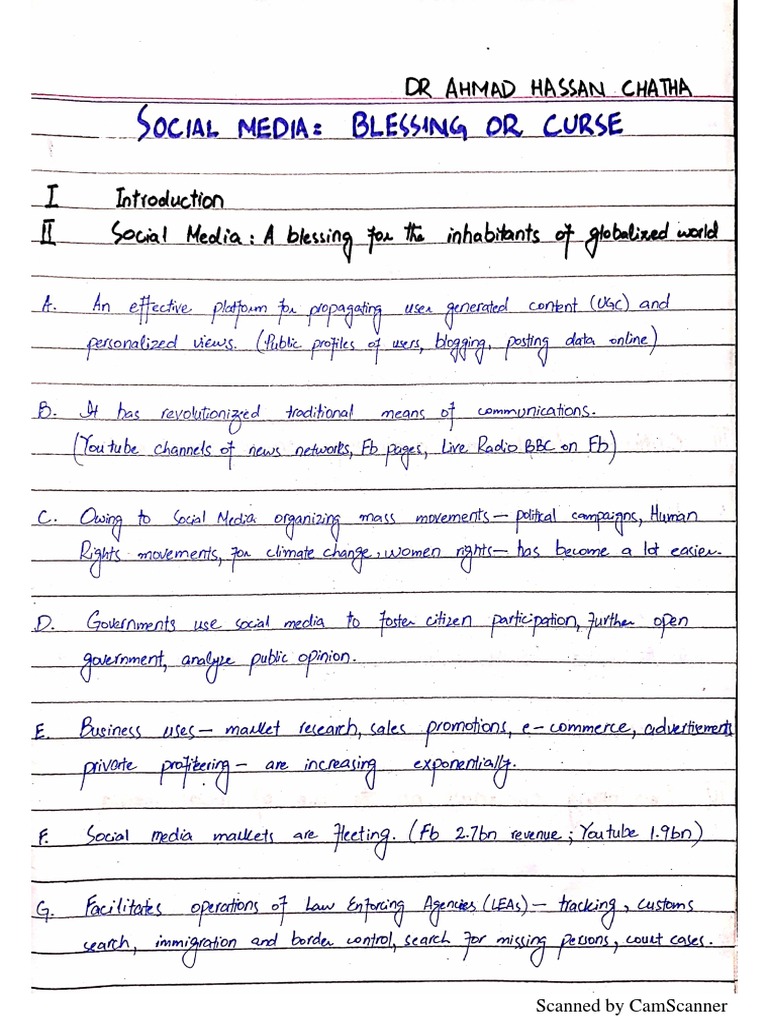 DR AHMAD HASSAN CHATHA
SOCIAL MEDIA: BLESSING OR CURSE
I Introduction
II Social Media: A blessing for the inhabitants of globalized world
A. An effective platform for propagating user generated content (UGC) and
personalized views. (Public profiles of users, blogging, posting data online)
B. It has revolutionized traditional means of communications.
(Youtube channels of news networks, Fb pages, Live Radio BBC on Fb)
C. Owing to Social Media organizing mass movements — political campaigns, Human
Rights movements, for climate change, women rights — has become a lot easier.
D. Governments use social media to foster citizen participation, further open
government, analyze public opinion.
E. Business uses — market research, sales promotions, e-commerce, advertisements
private profitering — are increasing exponentially.
F. Social media markets are fleeting. (Fb 2.7bn revenue; Youtube 1.9bn)
G. Facilitates operations of Law Enforcing Agencies (LEAs) — tracking, customs
search, immigration and border control, search for missing persons, court cases.
Scanned by CamScanner